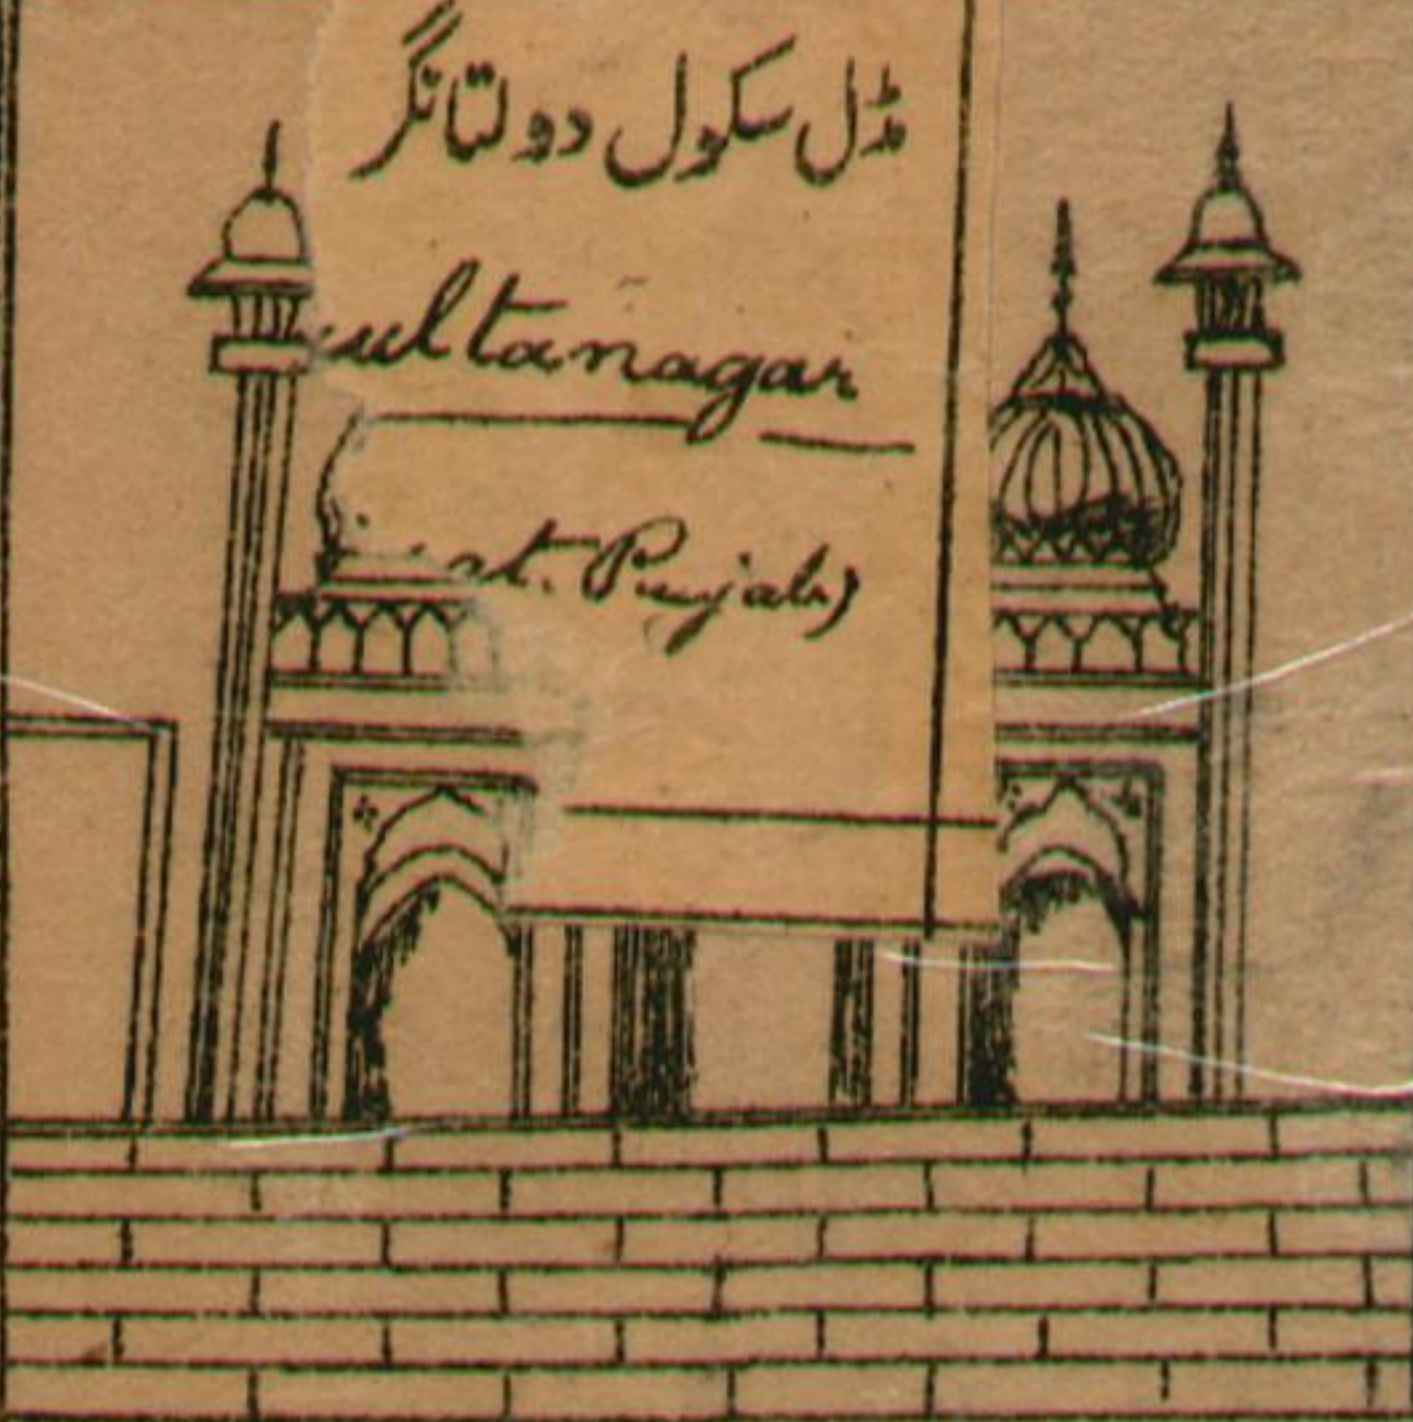 مڈل سکول دولتانگر
ultanagar
st. Punjab)